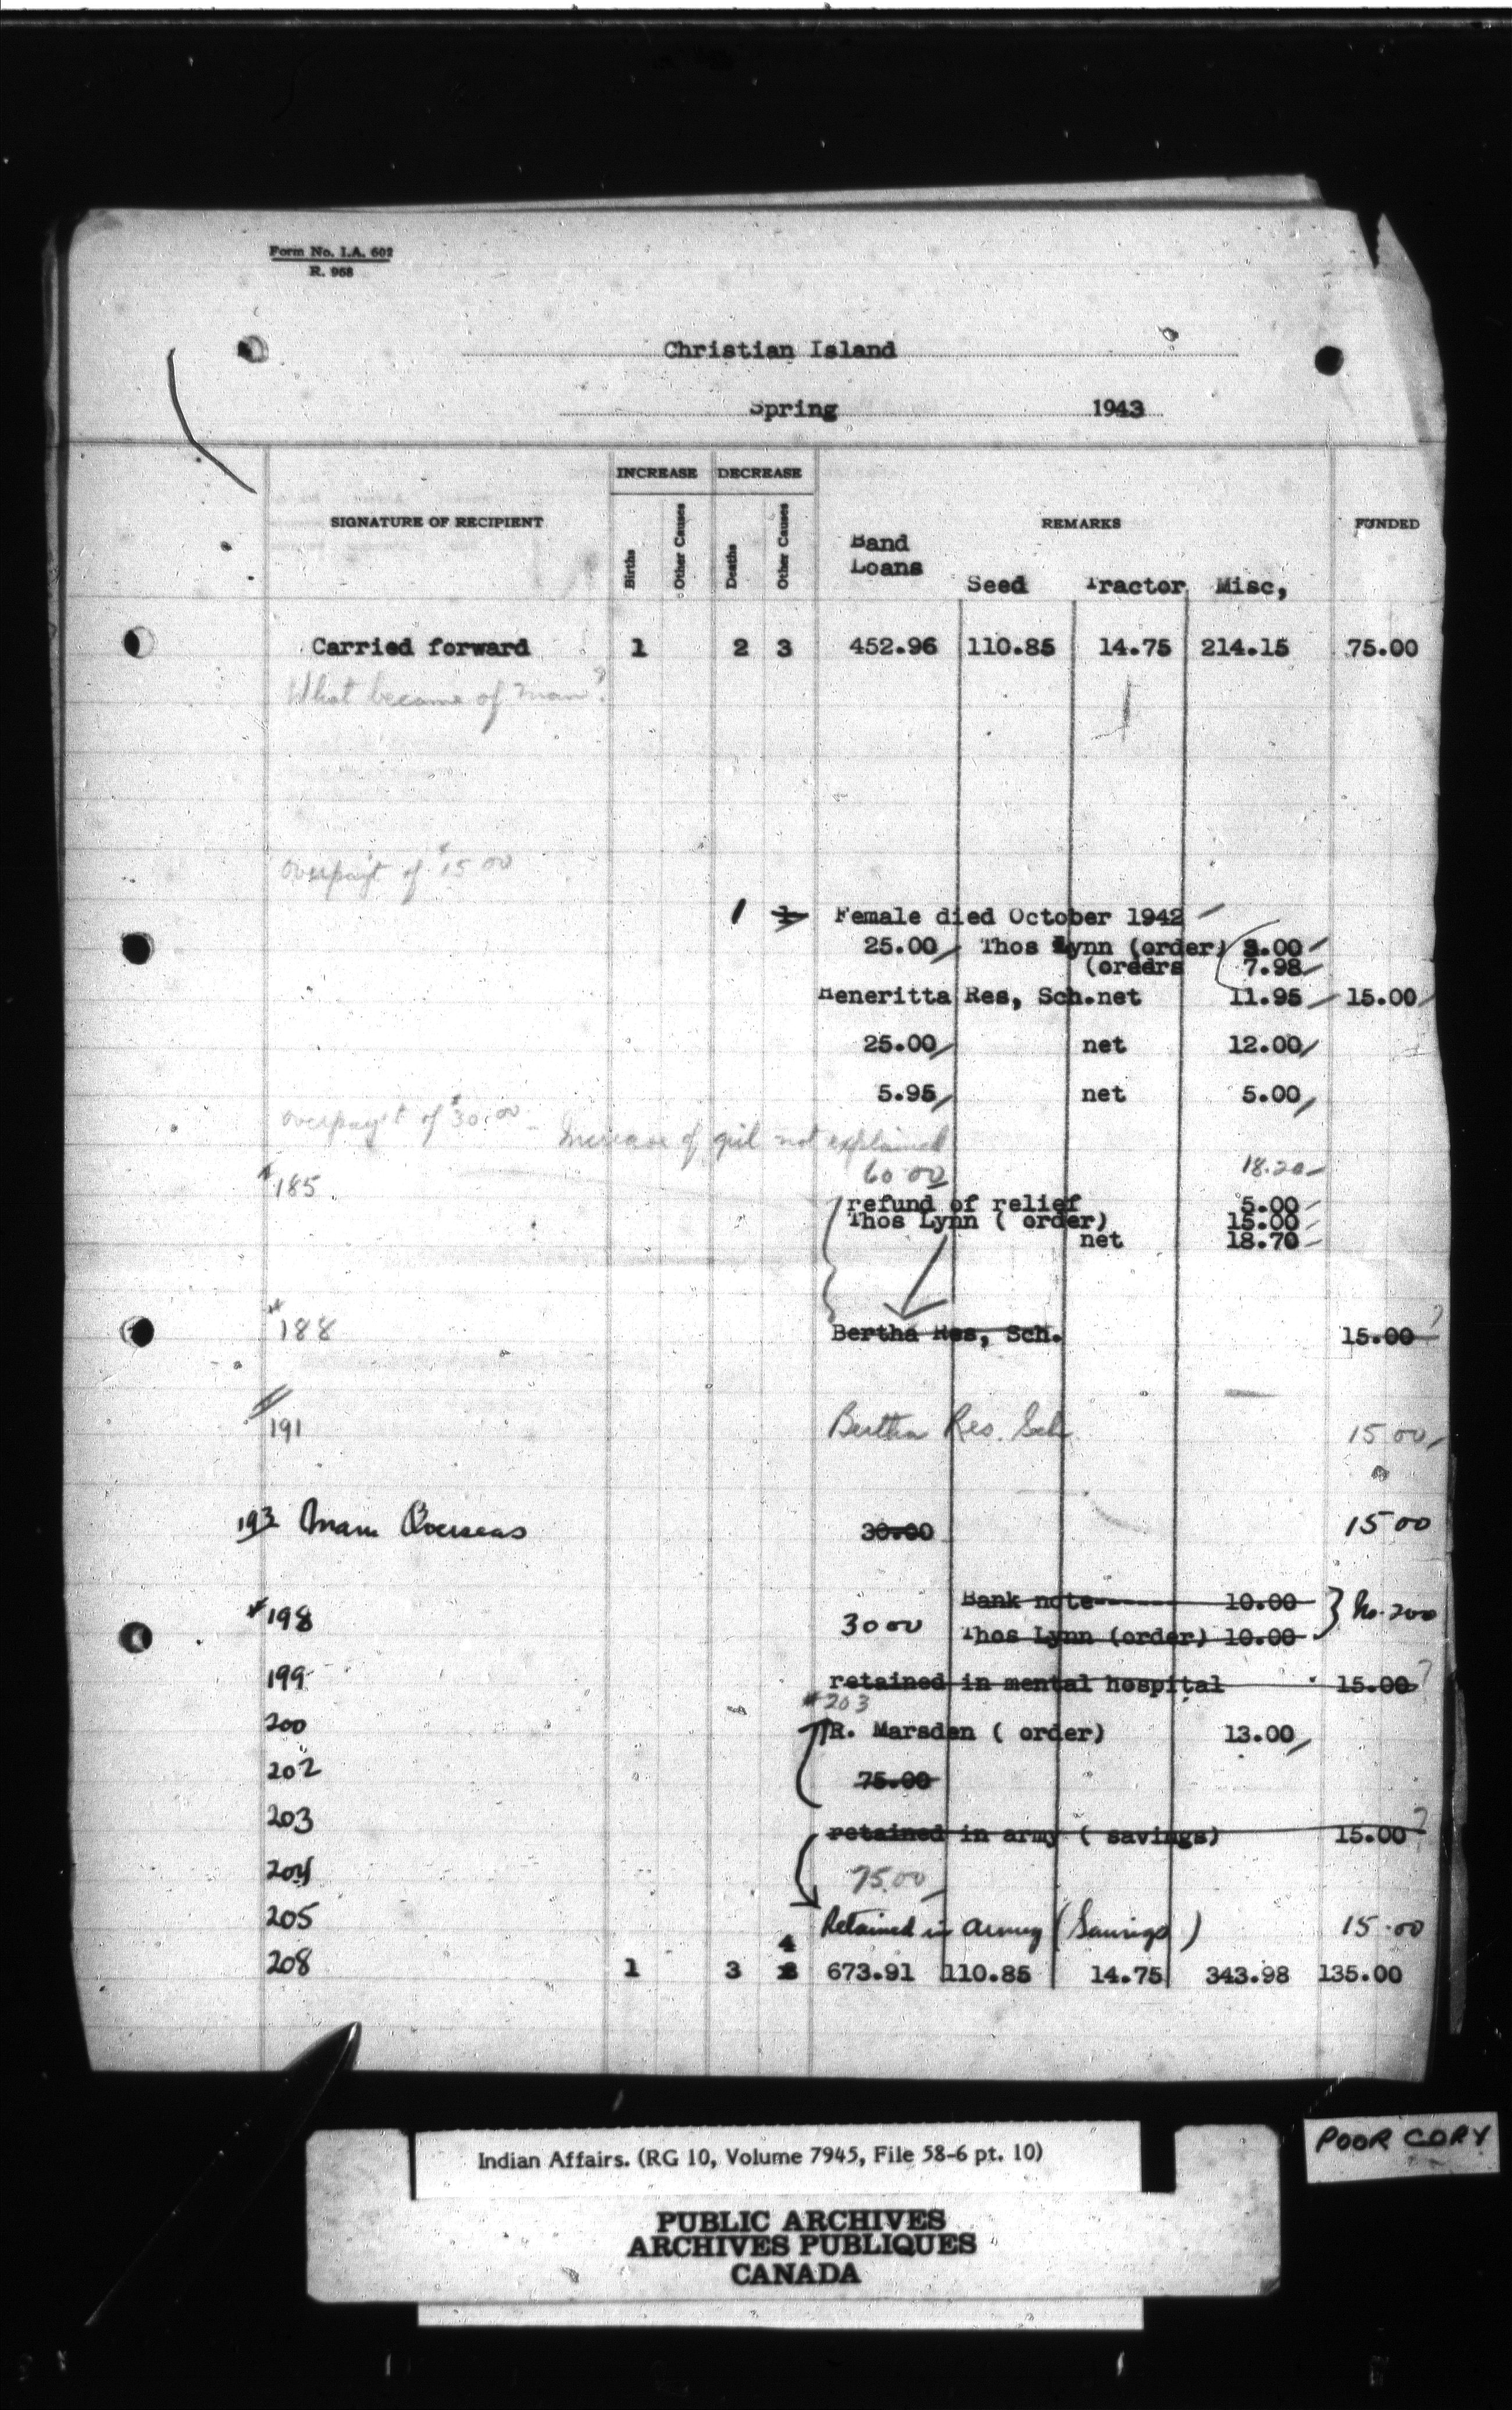 Form No. I.A. 602
R. 968
Christian Island
Spring 1943
INCREASE DECREASE
SIGNATURE OF RECIPIENT Births Other Causes Deaths Other Causes REMARKS FUNDED
Band
Loans Seed Tractor Misc,
Carried forward 1 2 3 452.96 110.85 14.75 214.15 75.00
What became of man?
overpay't of $15 00
1 1 Female died October 1942
25.00 Thos Lynn (order) 3.00
(oredrs 7.98
Heneritta Res, Sch.net 11.95 15.00
25.00 net 12.00
5.95 net 5.00
overpay't of $30.00 - Increase of girl not explained
60 00 18.20
#185
refund of relief 5.00
Thos Lynn ( order) 15.00
net 18.70
#188 Bertha Res, Sch. 15.00 ?
#191 Bertha Res. Sch 15 00
193 Man Overseas 30.00 15 00
Bank note------- 10.00
#198 30 00 Thos Lynn (order) 10.00 } No. 200
199 retained in mental hospital 15.00 ?
#203
200 R. Marsden ( order) 13.00
202 75.00
203 retained in army ( savings) 15.00 ?
204 75.00
205 Retained in army (Savings) 15.00
4
208 1 3 3 673.91 110.85 14.75 343.98 135.00
Indian Affairs. (RG 10, Volume 7945, File 58-6 pt. 10)
POOR COPY
PUBLIC ARCHIVES
ARCHIVES PUBLIQUES
CANADA